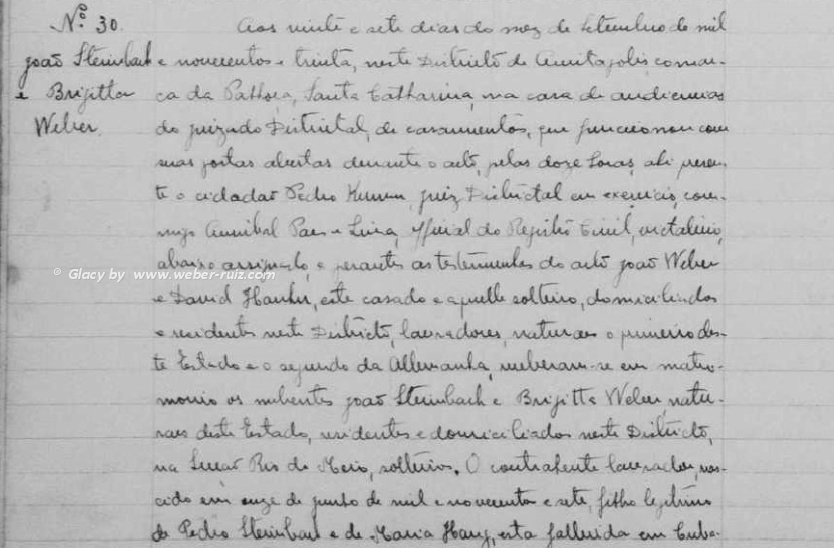 Nº 30.
João Steinbach
e Brigitta
Weber.
Aos vinte e sete dias do mez de Setembro de mil
e novecentos e trinta, neste Districto de Annitapolis, comar-
ca da Palhoça, Santa Catharina, na casa de audiencias
do juizado Districtal, de casamentos, que funccionou com
suas portas abertas durante o acto, pelas doze horas, ahi presen-
te o cidadão Pedro juiz Districtal em exercicio, com-
migo Annibal Paes e Lima, official do Registro Civil, vitalicio,
abaixo assignado, e perante as testemunhas do acto João Weber
e David este casado e aquelle solteiro, domiciliados
e residentes neste Districto, lavradores, naturaes o primeiro des-
te Estado e o segundo da Allemanha, receberam-se em matri-
monio os nubentes João Steinbach e Brigitta Weber, natu-
raes deste Estado, residentes e domiciliados neste Districto,
na Lugar Rio do Meio, solteiros. O contrahente lavrador, nas-
cido em onze de junho de mil e novecentos e sete, filho legitimo
de Pedro Steinbach e de Maria esta fallecida em
© Glacy by www.weber-ruiz.com